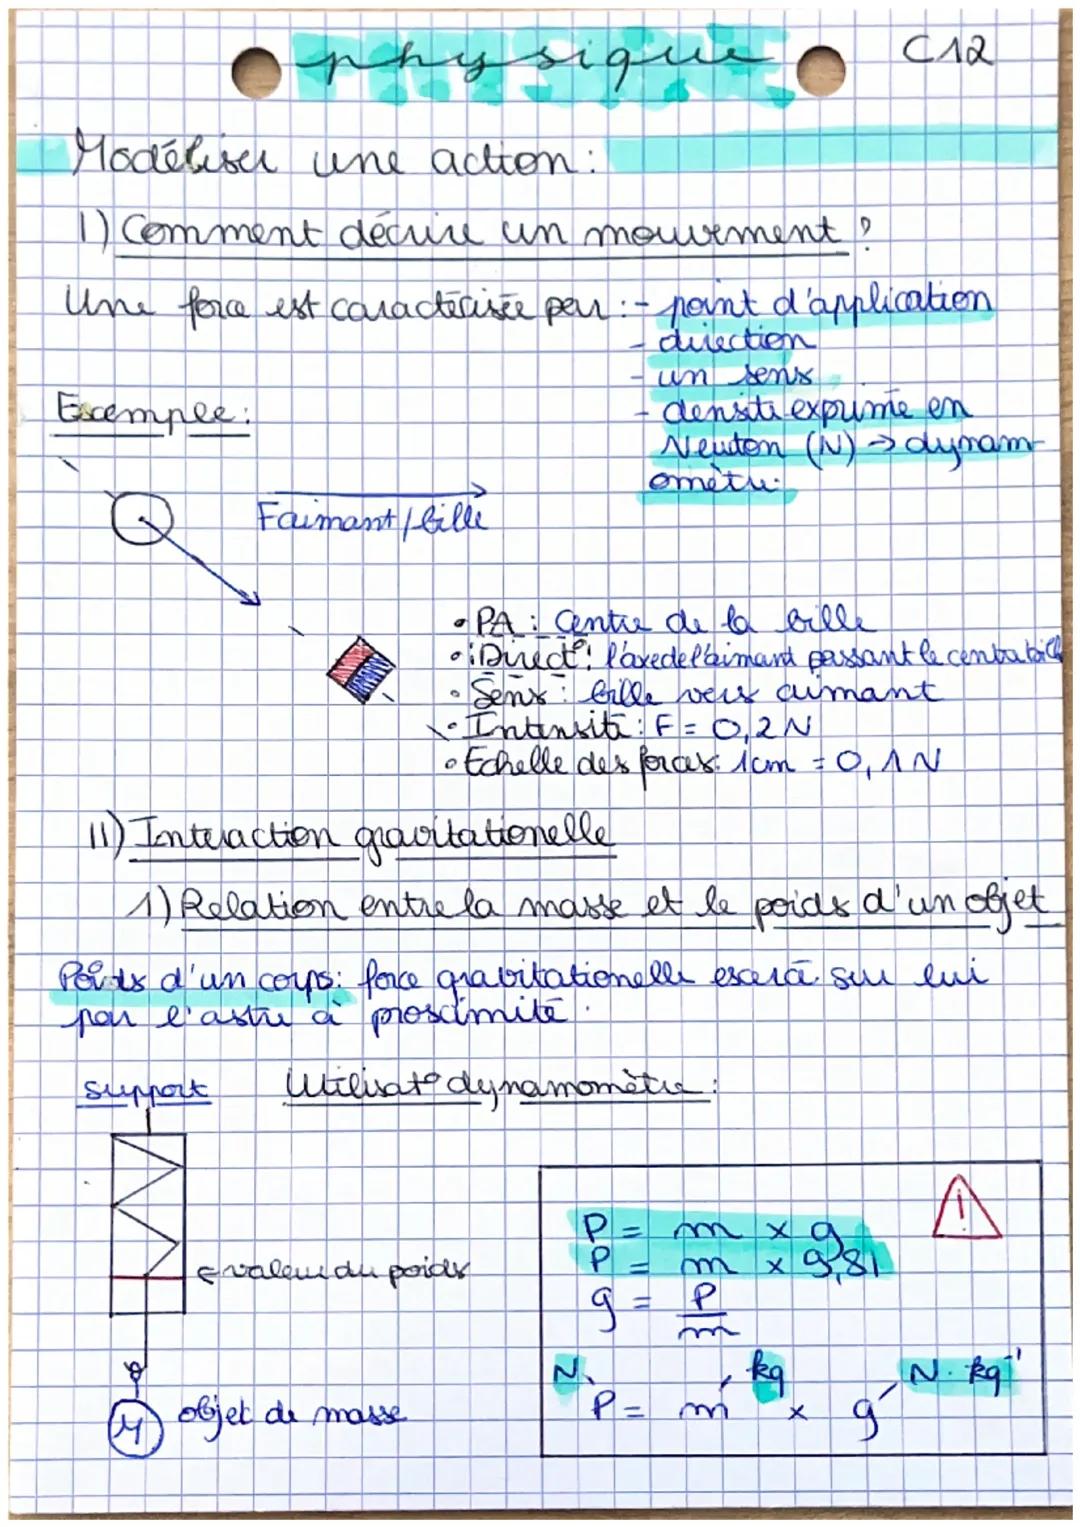 physique
C12
Modéliser une action :
I) Comment décrire un mouvement ?
Une force est caractérisée par : - point d'application
- direction
- un sens
- densité exprimé en
Newton (N) → dynam
omètre.
Exemple :
Faimant/bille
• PA : Centre de la bille
• Direct° : l'axe de l'aimant passant le centre
• Sens : bille vers aimant
• Intensité : F = 0,2 N
• Echelle des forces : 1cm = 0,1 N
II) Interaction gravitationelle
1) Relation entre la masse et le poids d'un objet
Poids d'un corps : force gravitationelle exercé sur lui
par l'astre à proximité.
support
Utilisat° dynamomètre :
← valeur du poids
M
objet de masse
!
P = m x g
P = m x 9,81
g = P
m
N kg N.kg⁻¹
P = m x g